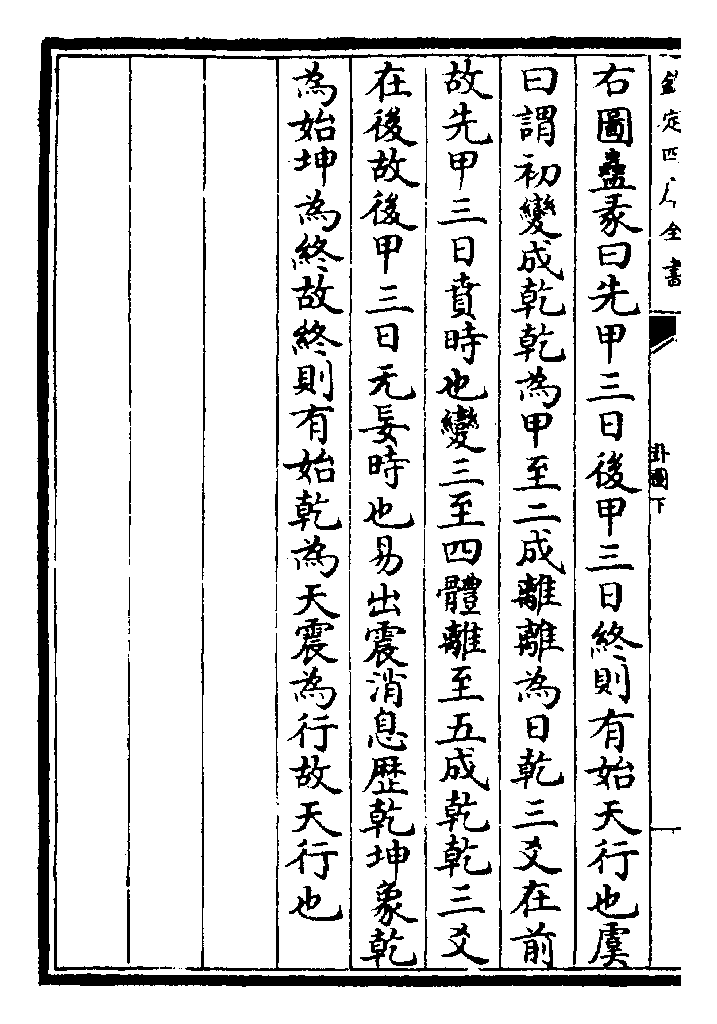 欽定四庫全書
卦圖下
右圖蠱彖曰先甲三日後甲三日終則有始天行也虞
曰謂初變成乾乾為甲至二成離離為日乾三爻在前
故先甲三日賁時也變三至四體離至五成乾乾三爻
在後故後甲三日无妄時也易出震消息歴乾坤象乾
為始坤為終故終則有始乾為天震為行故天行也